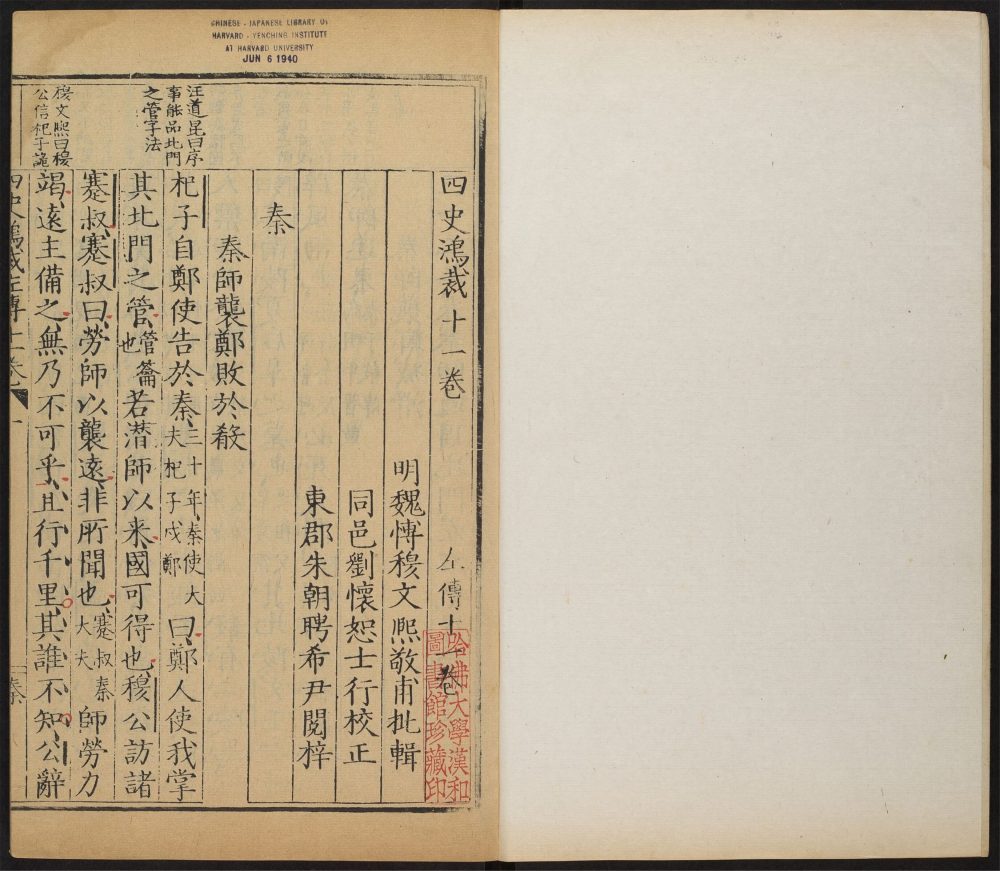 CHINESE - JAPANESE LIBRARY OF
HARVARD - YENCHING INSTITUTE
AT HARVARD UNIVERSITY
JUN 6 1940
四史鴻裁十一卷
左傳十一卷
明魏博穆文熈敬甫批輯
同邑劉懷恕士行校正
東郡朱朝聘希尹閱梓
秦
秦師襲鄭敗於殽
汪道昆曰序
事能品北門
之管字法
杞子自鄭使告於秦三十年秦使大夫杞子戍鄭曰鄭人使我掌
其北門之管管籥也若潛師以来國可得也穆公訪諸
蹇叔蹇叔曰勞師以襲遠非所聞也蹇叔秦大夫師勞力
穆文熈曰穆
公信杞子
竭遠主備之無乃不可乎且行千里其誰不知公辭
四史鴻裁左傳十一卷
一
秦
哈佛大學漢和
圖書館珍藏印